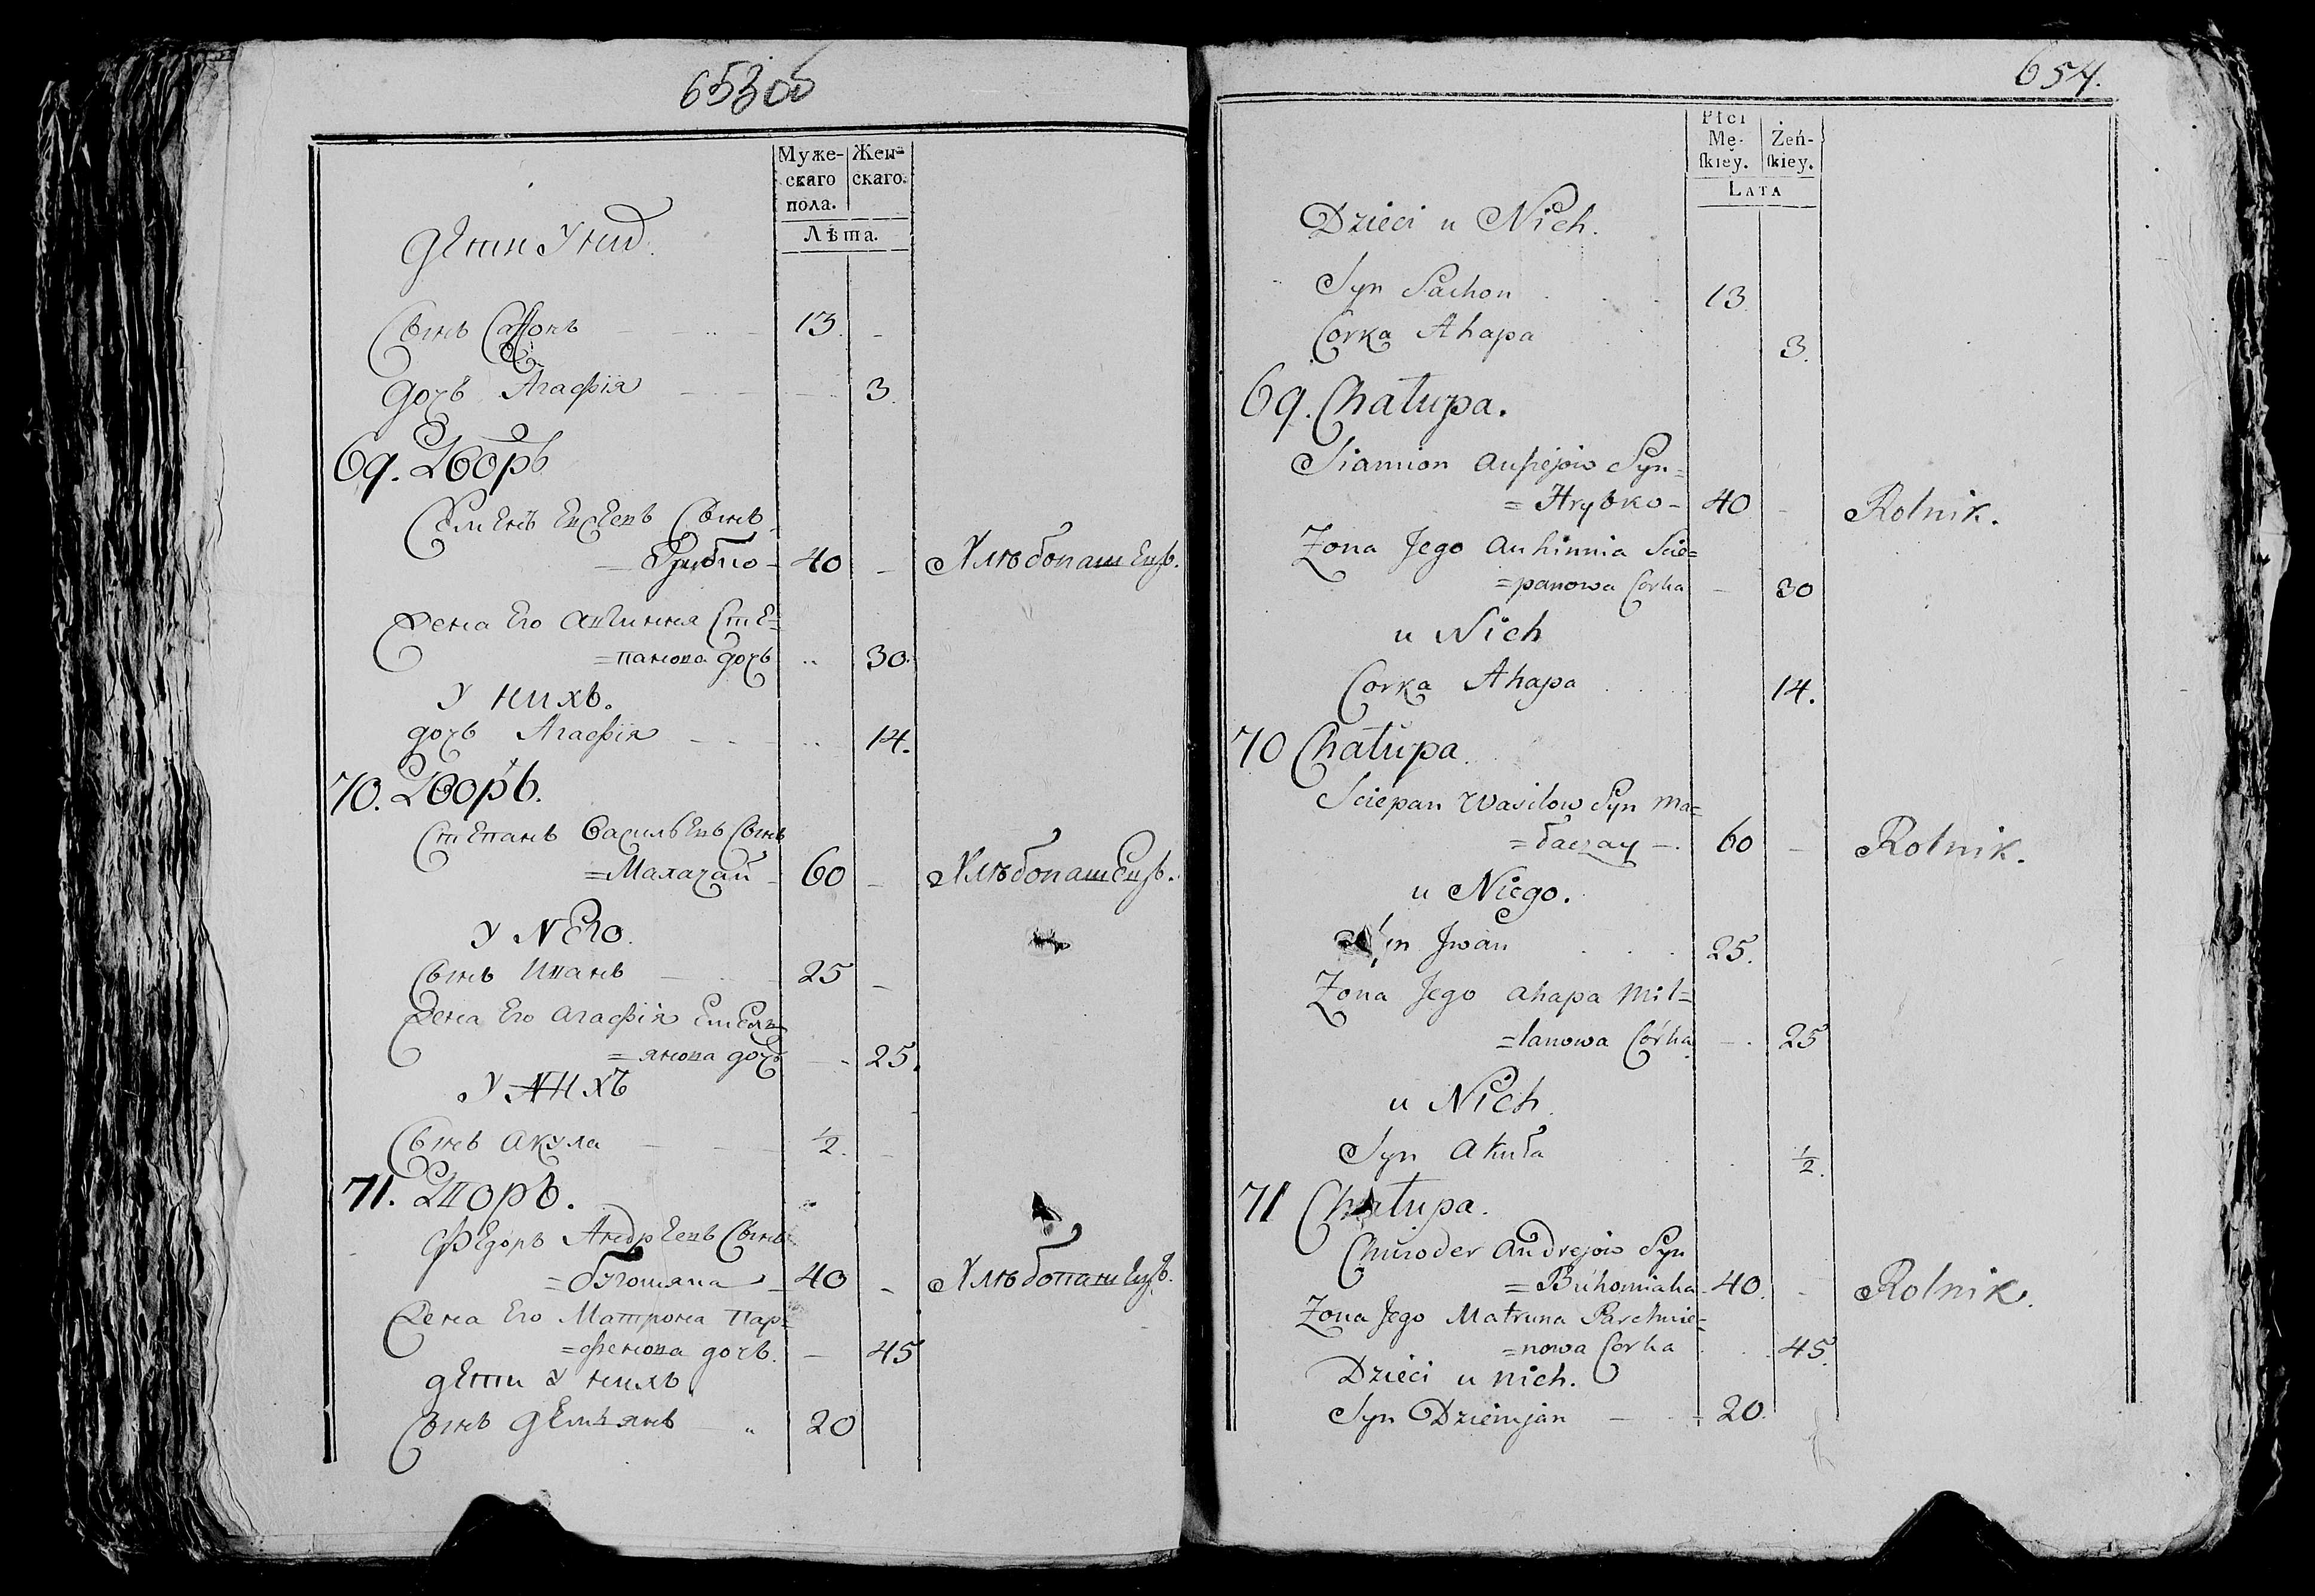 653 об
Муже-
скаго
пола.
Жен-
скаго.
Лѣта.
дети у них
Сынъ Сафонъ 13. -
дочь Агафiя 3.
69. Дворъ
Семенъ Евсеевъ Сынъ
= Грибко - 40 - Хлѣбопашецъ.
Жена Его Авгиння Сте=
=панова дочь 30.
У нихъ.
дочь Агафiя 14.
70. Дворъ.
Степанъ Васильевъ Сынъ
=Малачай - 60 - Хлѣбопашецъ.
У Него.
Сынъ Иванъ 25 -
Жена Его Агафiя Емель=
=янова дочь 25.
У нихъ
Сынъ Акула ½. -
71. Дворъ.
Федоръ Андреевъ Сынъ
=Бугомяка - 40 - Хлѣбопашецъ.
Жена Его Матрона Пар=
=фенова дочь. - 45
дети у нихъ
Сынъ демьянъ 20
654.
Płci
Mę-
ſkiey.
Żeń-
ſkiey.
LATA
Dzieci u Nich.
Syn Sachon 13
Corka Ahapa 3.
69. Chałupa.
Siamion Ausiejow Syn=
= Hrybko - 40 - Rolnik.
Zona Jego Auhinnia Scie=
=panowa Corka - 30
u Nich
Corka Ahapa 14.
70 Chałupa.
Sciepan Wasilow Syn Ma=
=łaczay - 60 - Rolnik.
u Niego.
Syn Jwan 25.
Zona Jego Ahapa Mil=
=lanowa Córka - 25
u Nich
Syn Akuła ½.
71 Chałupa.
Chwioder Andrejow Syn
= Buhomiaka - 40. - Rolnik.
Zona Jego Matruna Parchwie=
=nowa Corka 45.
Dzieci u nich.
Syn Dziemjan - 20.